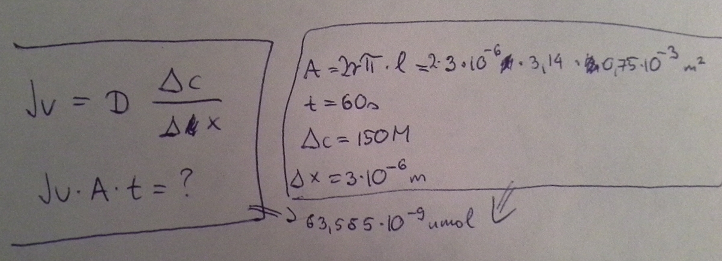 Jv = D Δc / Δx
Jv · A · t = ?
A = 2rπ · l = 2 · 3 · 10⁻⁶ · 3,14 · 0,75 · 10⁻³ m²
t = 60s
Δc = 150 M
Δx = 3 · 10⁻⁶ m
63,585 · 10⁻⁹ umol